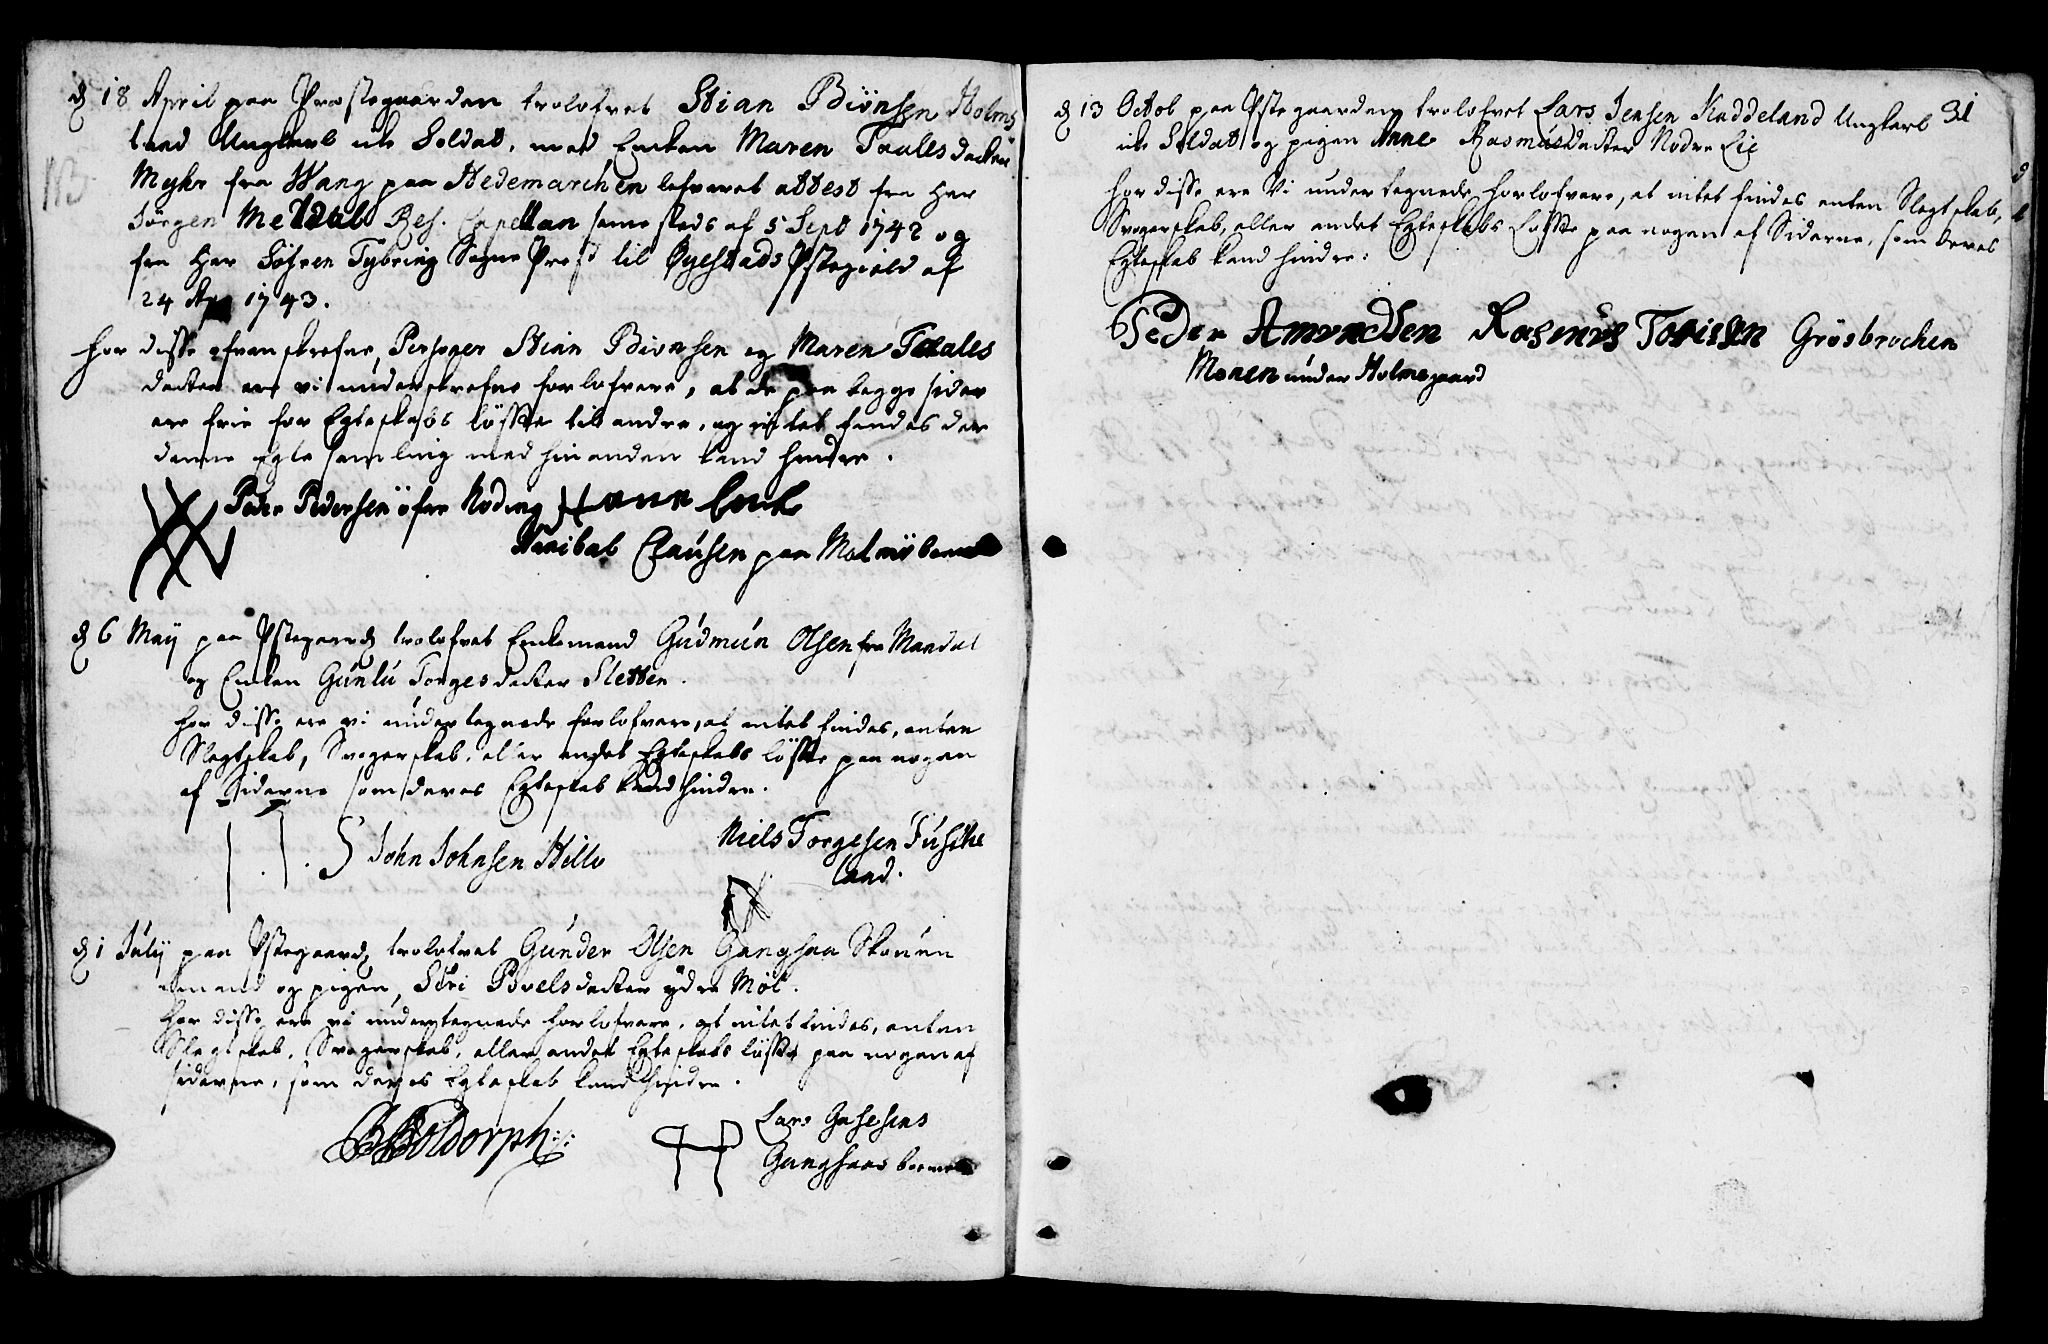 d 18 April paa Præstegaarden trolofvet Stian Biönsen Holms
land Ungkarl ick Soldat, med Encken Maren Taalesdatter
NB
Myhr fra Wang paa Hedemarchen lefveret attest fra Her
Jörgen Meldal Res. Capellan sammesteds af 5 Sept 1742 og
fra Her Söfren Tybring Sogne Præst til Øyestads Præstegield af
24 Apr 1743.
For disse ofvenskrefne Persoger Stian Bionsen og Maren Taales
datter ere vi underskrefne forlofvere, at de paa begge sider
ere frie for Egteskabs löffte til andre, og intet findes der
denne Egte samling med hinanden kand hindre.
Peder Pedersen öfre Röding
Hanibal Clausen paa
d 6 Maij paa Pstegaard trolofvet Enckemand Gudmun Olsen fra Mandal
og Encken Gunlu Torgesdatter Sletten.
For disse ere vi undertegnede forlofvere, at intet findes, enten
Slegtskab, Svogerskab, eller andet Egteskabs löffte paa nogen
af Siderne som deres Egteskab kand hindre.
John Johnsen Hille
Niels Torgesen Fusche
land.
d 1 Julij paa Pstegaard trolofvet Gunder Olsen Gangsaa
og pigen Siri Povelsdatter ydre Møl.
For disse ere vi undertegnede forlofvere, at intet findes, enten
Slegtskab, Svogerskab, eller andet Egteskabs löffte paa nogen af
siderne, som deres Egteskab kand hindre.
B Boldorph
Lars
Gangsaas
31
d 13 Octob paa Pstegaarden trolofvet Lars Jensen Kaddeland Ungkarl
ick Soldat og pigen Anne Rasmusdatter Nodre Lie
For disse ere Vi undertegnede forlofvere, at intet findes enten Slegtskab,
Svogerskab, eller andet Egteskabs Löffte paa nogen af Siderne, som deres
Egteskab kand hindre:
Peder Amundsen Rasmus Torissen Grösbrochen
Monen under Holmegaard